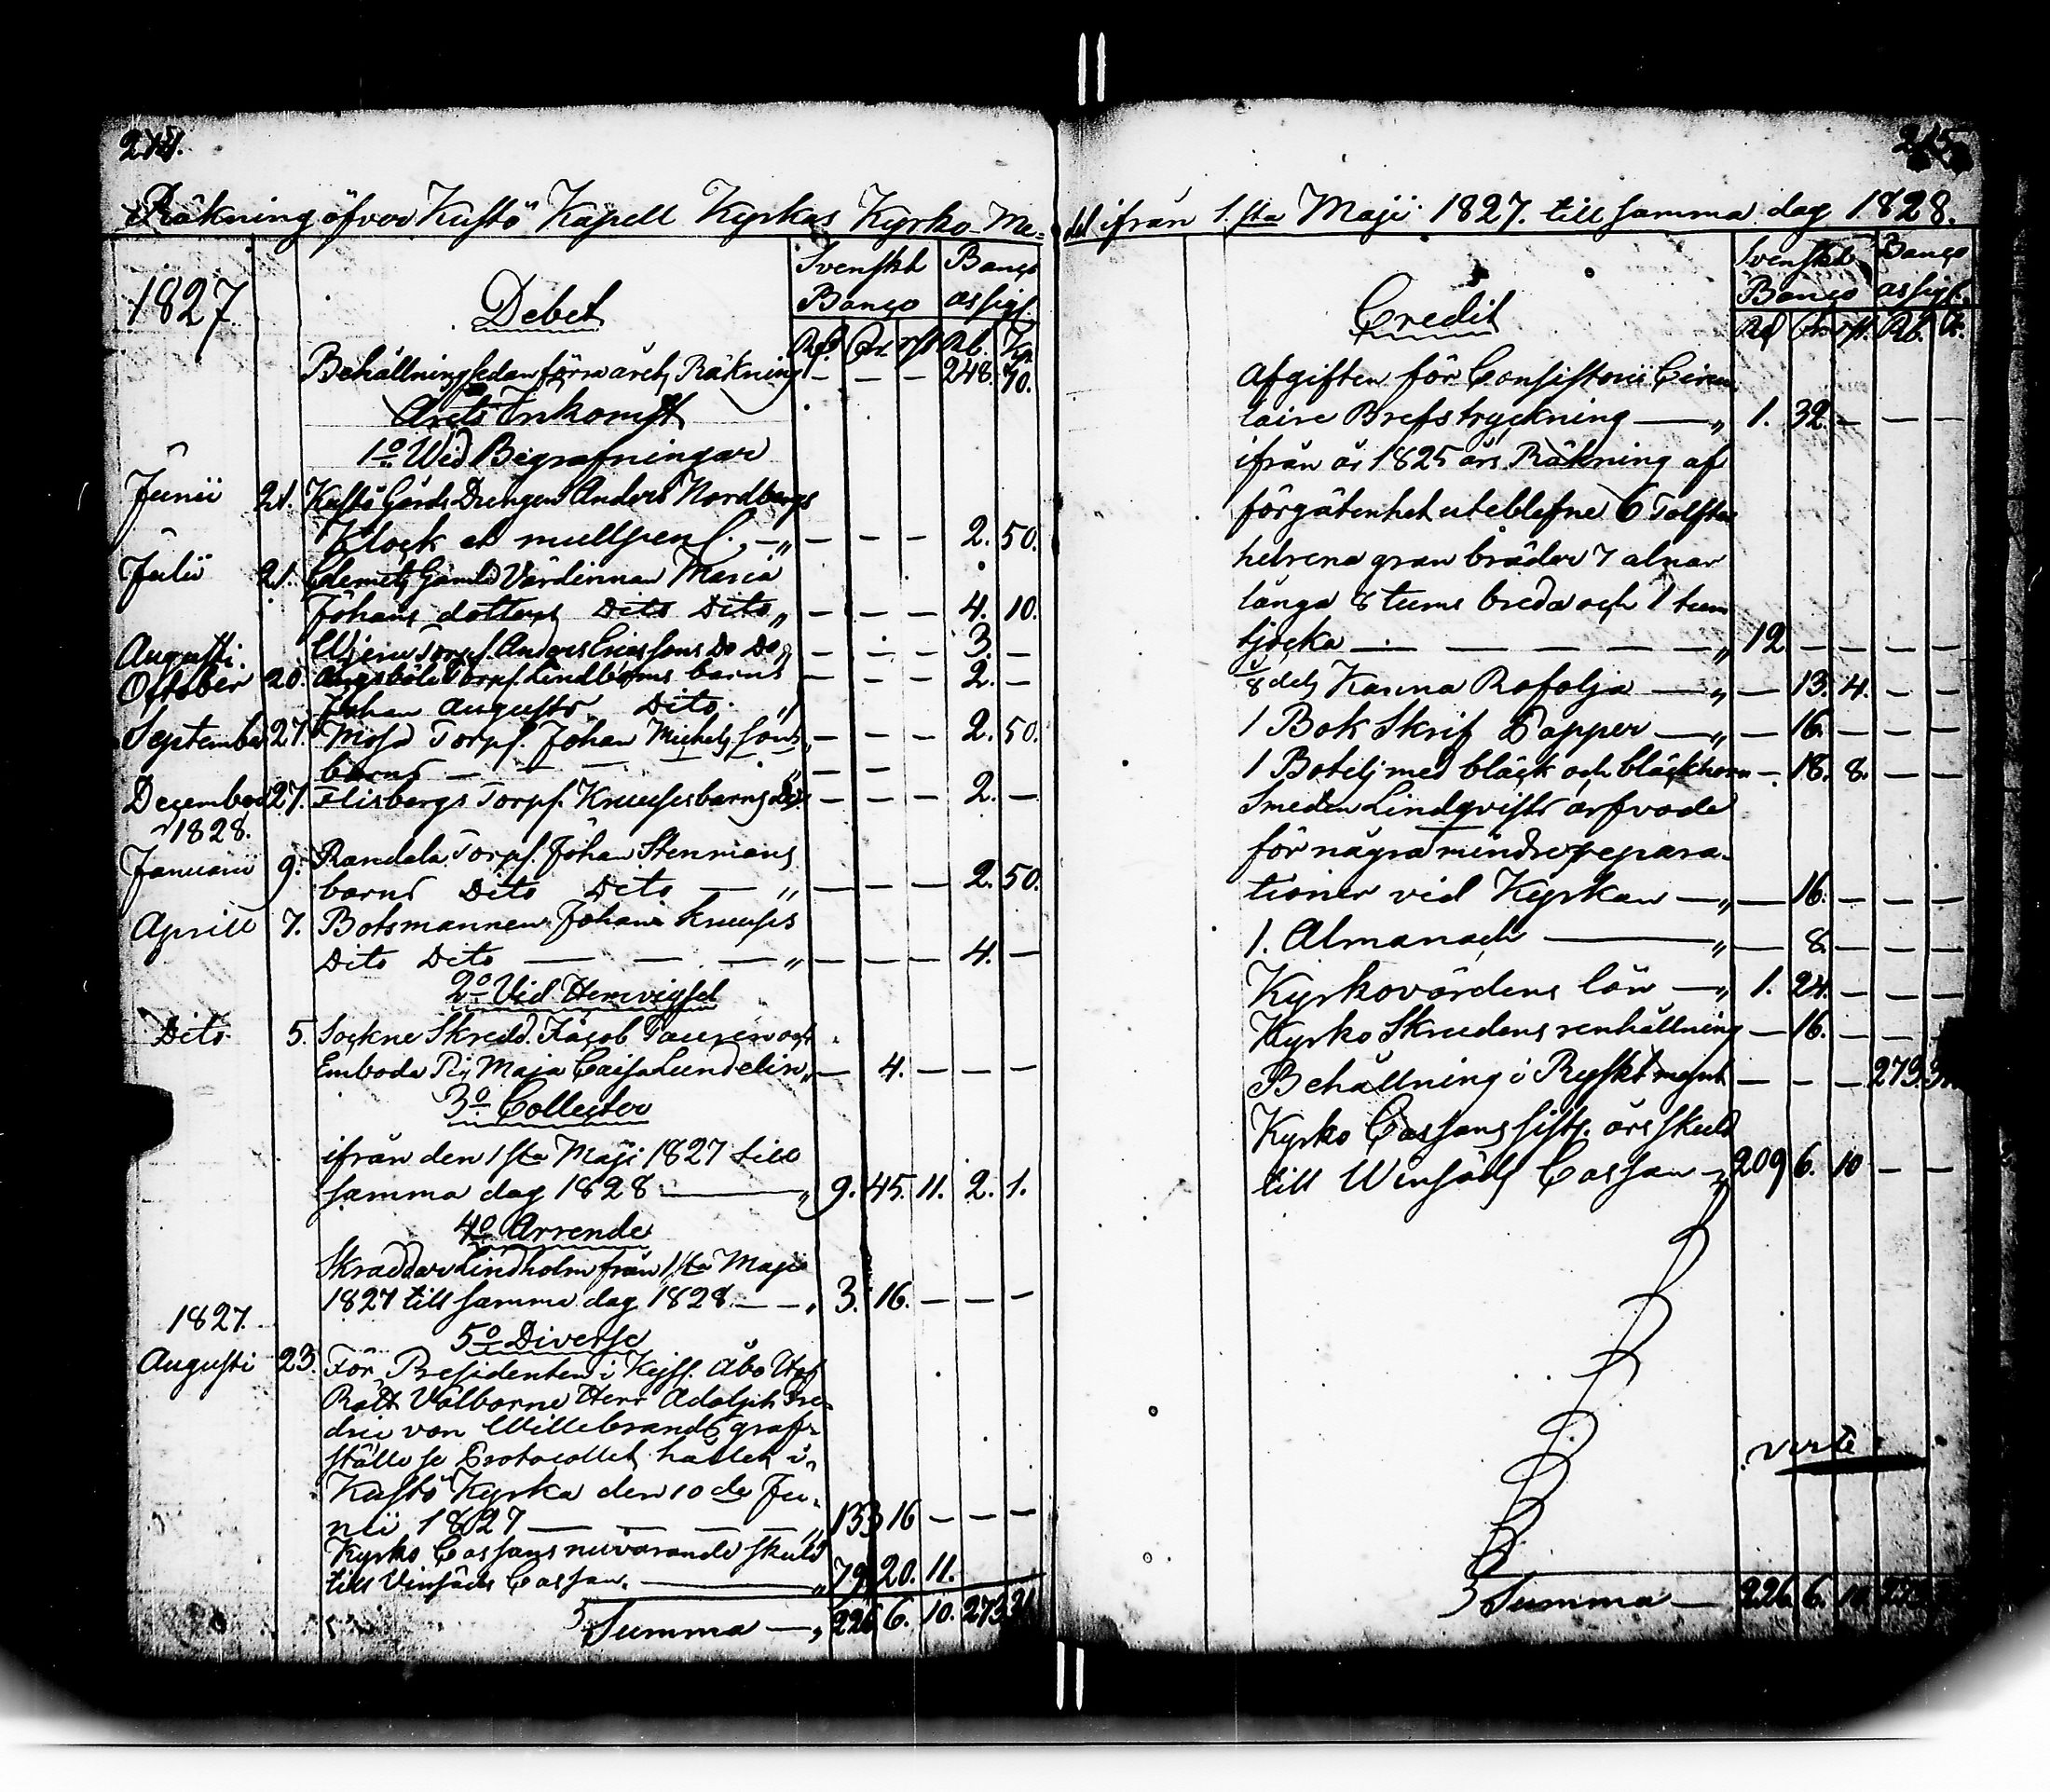 214.
Räkning öfver Kustö Kapell Kyrkas Kyrko-Me=
1827
Debet
Svenskt Banco
Banco assign.
Rd. Sk. rst. Rb. Kop.
Behållning sedan förra årets Räkning — — — 248. 70.
Årets Inkomst
1o Wid Begrafningar
Junii 21. Kustö Gårds Drengen Anders Nordbergs
Klock et mullpen „ — — — 2. 50.
Julii 21. Clemets Gamla Värdinnan Maria
Johans dotters Dito Dito „ — — — 4. 10.
Augusti. Torpf. Anders Ericssons Do Do „ — — — 3. —
October 20. Ängsböle Torpf. Lindbloms barns — — — 2. —
Johan Augusts Dito. „
September 27. Mosa Torpf. Johan Michels sons — — — 2. 50.
barns — — — — „ — —
December 27. Flisbergs Torpf. Knuuses barns Do — — — 2. —
1828.
Januarii 9. Randala Torpf. Johan Stenmans
barns Dito Dito — „ — — — 2. 50.
Aprill 7. Botsmannen Johan Knuuses
Dito Dito — — — „ — — — 4. —
2o Vid Hemvigsel
Dito 5. Sockne Skredd. Jacob Tauren och
Emboda Pig Maja Caisa Lundelin „ — 4. — — —
3o Collecter
ifrån den 1sta Maji 1827 till
samma dag 1828 — „ 9. 45. 11. 2. 1.
4o Arrende
Skraddar Lindholm från 1sta Maji
1827 till samma dag 1828 — — „ 3. 16. — — —
1827.
5o Diverse
Augusti 23. För Presidenten i Kejs. Åbo Hof
Rätt Välborne Herr Adolph Fre-
dric von Willebrands graf-
ställe se Protocollet hållet i
Kustö Kyrka den 10de Ju-
nii 1827 — — — — „ 133 16 — — —
Kyrko Cassans nuvarande skuld
till Vinsäds Cassan. — „ 79. 20. 11.
Summa — „ 226 6. 10. 273 31.
215
del ifrån 1.sta Maji 1827. till samma dag 1828.
Credit
Svenskt Banco
Banco assign.
Rd Sk rst. Rb. K.
Afgiften för Consistorii Circu-
laire Brefs tryckning — „ 1. 32. — — —
ifrån år 1825 års Räkning af
förgätenhet uteblefne 6 Tolfter
helrena gran bräder 7 alnar
långa 8 tums breda och 1 tum
tjocka — — — — — „ 12 — — — —
dels Kanna Rofolja — „ — 13. 4. — —
1 Bok Skrif Papper — „ — 16. — — —
1 Botelj med bläck och bläckhorn — 18. 8. — —
Smeden Lindqvists arfvode
för några mindre repara-
tioner vid Kyrkan — „ — 16. — — —
1. Almanach — „ — 8. — — —
Kyrkovärdens lön — „ 1. 24. — — —
Kyrko Skrudens renhållning — 16. — — —
Behållning i Ryskt mynt — — — 273. 31
Kyrko Cassans sistl. års skuld
till Winsäds Cassan — „ 209 6. 10 — —
verte
Summa — 226. 6. 10. 273